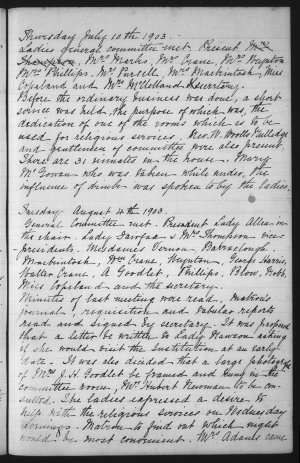 Thursday July 10th 1903.
Ladies general committee met. Present Mrs
Thompson, Mrs Marks, Mrs Crane, Mrs Wynton
Mrs Phillips, Mrs Pursell, Mrs Mackintosh, Miss
Copeland and Mrs McClelland Secretary.
Before the ordinary business was done, a short
service was held, the purpose of which was, the
dedication of one of the rooms which is to be
used for religious services. Rev. W. Rutledge
and gentlemen of committee were also present.
There are 31 inmates in the house. Mary
McGowan who was taken while under the
influence of drink was spoken to by the ladies.
Tuesday August 4th 1903.
General Committee met. President Lady Allen in
the chair. Lady Fairfax & Mrs Thompson vice-
presidents, Mesdames Vernon, Barraclough,
Mackintosh, Wm Crane, Wynton, Harris,
Walter Crane, A Goodlet, Phillips, Blow,
Miss Copeland and the secretary.
Minutes of last meeting were read, matron's
journal, requisition and tabular reports
read and signed by secretary. It was proposed
that a letter be written to Lady Rawson asking
if she would visit the institution at an early
date. It was also decided that a large photograph
of Mrs J. H. Goodlet be framed and hung in the
committee room, Mr Hubert Newman to be con-
sulted. The ladies expressed a desire to
help with the religious services on Wednesday
evenings. Matron to find out which night
would be most convenient. Mrs Adams came